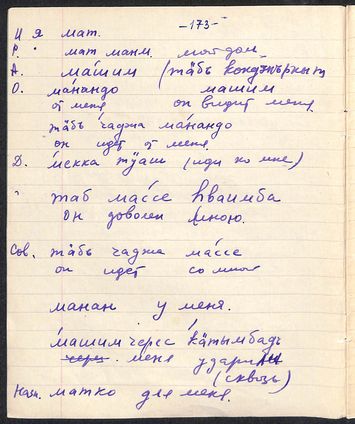 -173-
И я мат.
Р. " мат манм. мой дом
А. ма́шим (тӓбъ кондӂърныт
О. ма́нандо машим
от меня он видит меня
тӓбъ чаджа ма́нандо
он идет от меня
Д. ме́кка тӱаш (иди ко мне)
" таб ма́ссе һваимба
он доволен (мною.
Сов. тӓбъ чаджа ма́ссе
он идет со мной
манан у меня.
ма́шим черес кӓтымбадъ
через меня ударил
(сквозь)
Назн. матко для меня.